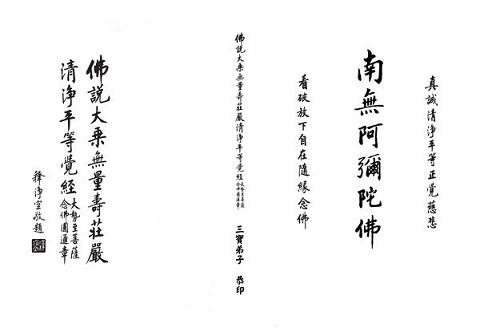 真誠清淨平等正覺慈悲
南無阿彌陀佛
看破放下自在隨緣念佛
佛說大乘無量壽莊嚴清淨平等覺經
大勢至菩薩
念佛圓通章
三寶弟子 恭印
佛說大乘無量壽莊嚴
清淨平等覺經
大勢至菩薩
念佛圓通章
釋淨空敬題